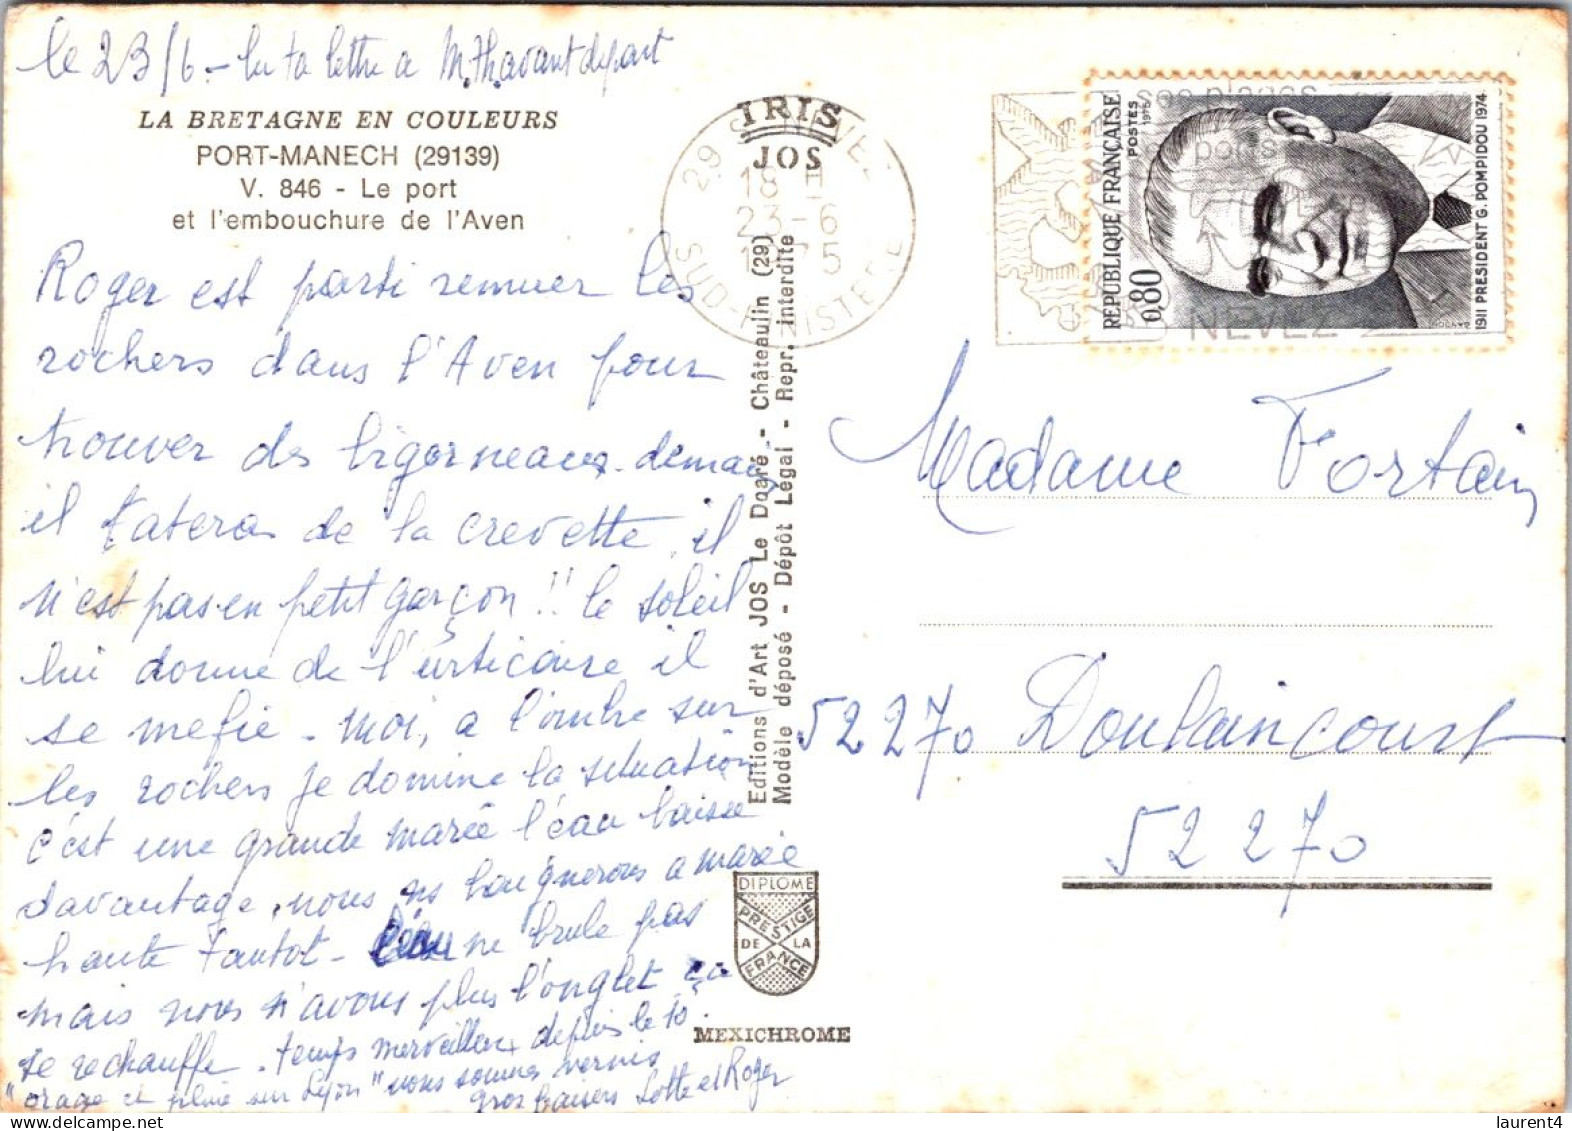 le 23/6 - lu ta lettre a M.Th. avant depart
LA BRETAGNE EN COULEURS
PORT-MANECH (29139)
V. 846 - Le port
et l'embouchure de l'Aven
Roger est parti remuer les
rochers dans l'Aven pour
trouver des bigorneaux - demain
il tatera de la crevette, il
n'est pas en petit garçon !! le soleil
lui donne de l'urticaire il
se mefie - moi, a l'ombre sur
les rochers je domine la situation
c'est une grande marée l'eau baisse
davantage, nous ns baignerons a marée
haute tantot - l'eau ne brule pas
mais nous n'avons plus l'onglet ça
se rechauffe. temps merveilleux depuis le 10.
"orage et pluie sur Lyon" nous sommes vernis
gros baisers Lotte et Roger
IRIS
JOS
Editions d'Art JOS Le Doaré - Châteaulin (29)
Modèle déposé - Dépôt Légal - Repr. interdite
DIPLOME
PRESTIGE
DE LA
FRANCE
MEXICHROME
29 NEVEZ
18 H
23-6
1975
SUD-FINISTERE
ses plages
ports
NEVEZ
REPUBLIQUE FRANÇAISE
POSTES 1975
0,80
1911 PRESIDENT G. POMPIDOU 1974
Madame Fortain
52270 Doulaincourt
52270
laurent4